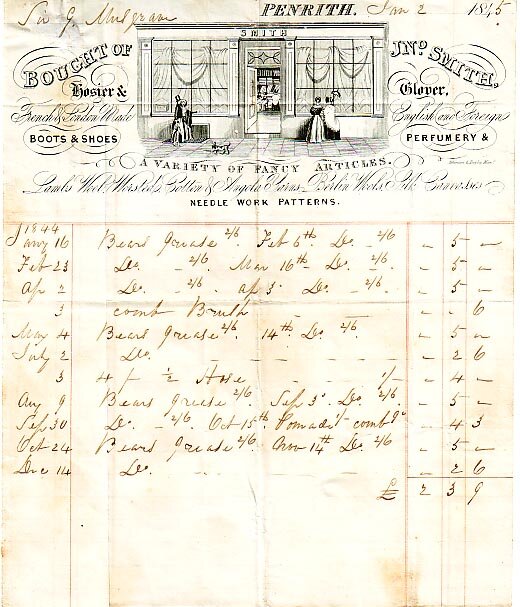 Sir G. Musgrave PENRITH. Jan 2 1845
SMITH
BOUGHT OF JNO. SMITH,
Hosier & Glover,
French & London Made English and Foreign
BOOTS & SHOES PERFUMERY &
A VARIETY OF FANCY ARTICLES.
Lambs Wool, Worsted, Cotton & Angola Yarns, Berlin Wools, Silk Canvasses
NEEDLE WORK PATTERNS.
1844
Jany 16 Bears Grease 2/6 Feb 6th Do - 2/6 - 5 -
Feb 23 Do - 2/6. Mar 16th Do. - 2/6. - 5 -
Ap 2 Do - 2/6. Ap 3. Do. - 2/6. - 5 -
3 comb Brush - - 6
May 4 Bears Grease 2/6. 14th. Do. 2/6. - 5 -
July 2 Do. - 2 6
3 4 pr ½ Hose 1/- - 4 -
Aug 9 Bears Grease 2/6. Sep 3d. Do. 2/6 - 5 -
Sep 30 Do. - 2/6. Oct 15th. Pomade 1/- comb 9d - 4 3
Oct 24 Bears Grease 2/6. Nov 14th Do. 2/6 - 5 -
Dec 14 Do. - 2 6
£ 2 3 9